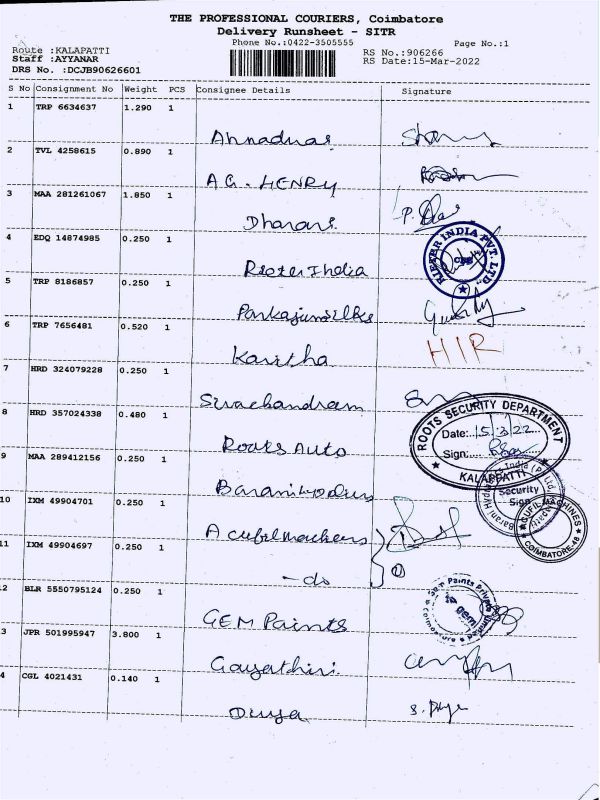 THE PROFESSIONAL COURIERS, Coimbatore
Delivery Runsheet - SITR
Phone No.:0422-3505555
Page No.:1
Route :KALAPATTI
Staff :AYYANAR
DRS No. :DCJB90626601
RS No.:906266
RS Date:15-Mar-2022
S No Consignment No Weight PCS Consignee Details Signature
1 TRP 6634637 1.290 1
2 TVL 4258615 0.890 1
A.G. HENRY
3 MAA 281261067 1.850 1
Dharani
4 EDQ 14874985 0.250 1
Rieter India
REITER INDIA PVT. LTD.
5 TRP 8186857 0.250 1
6 TRP 7656481 0.520 1
Kavitha
HIR
7 HRD 324079228 0.250 1
Sivachandram
8 HRD 357024338 0.480 1
Roots Auto
ROOTS SECURITY DEPARTMENT
Date: 15/3/22
Sign:
KALAPPATTI
9 MAA 289412156 0.250 1
Security
Sign
10 IXM 49904701 0.250 1
COIMBATORE-48
11 IXM 49904697 0.250 1
- do
2 BLR 5550795124 0.250 1
GEM Paints
gem
3 JPR 501995947 3.800 1
Gayathiri
4 CGL 4021431 0.140 1
Divya